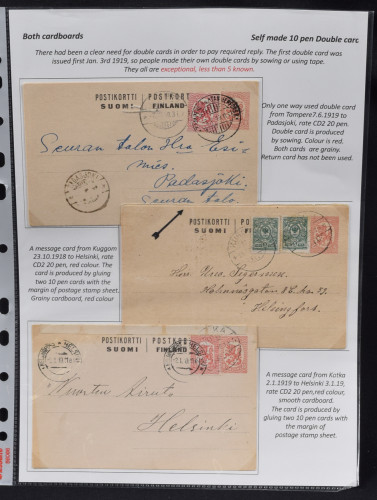 Both cardboards
Self made 10 pen Double carc
There had been a clear need for double cards in order to pay required reply. The first double card was
issued first Jan. 3rd 1919, so people made their own double cards by sowing or using tape.
They all are exceptional, less than 5 known.
POSTIKORTTI POSTKORT
SUOMI FINLAND
Seuran talon Hra Esi-
mies.
Padasjoki.
Seuran talo.
Only one way used double card
from Tampere7.6.1919 to
Padasjoki, rate CD2 20 pen.
Double card is produced
by sowing. Colour is red.
Both cards are grainy.
Return card has not been used.
A message card from Kuggom
23.10.1918 to Helsinki, rate
CD2 20 pen, red colour. The
card is produced by gluing
two 10 pen cards with the
margin of postage stamp sheet.
Grainy cardboard, red colour
POSTIKORTTI POSTKORT
SUOMI FINLAND
Herr Uno
Helsingfors.
POSTIKORTTI
SUOMI FINLAND
Helsinki
A message card from Kotka
2.1.1919 to Helsinki 3.1.19,
rate CD2 20 pen,red colour,
smooth cardboard.
The card is produced by
gluing two 10 pen cards
with the margin of
postage stamp sheet.